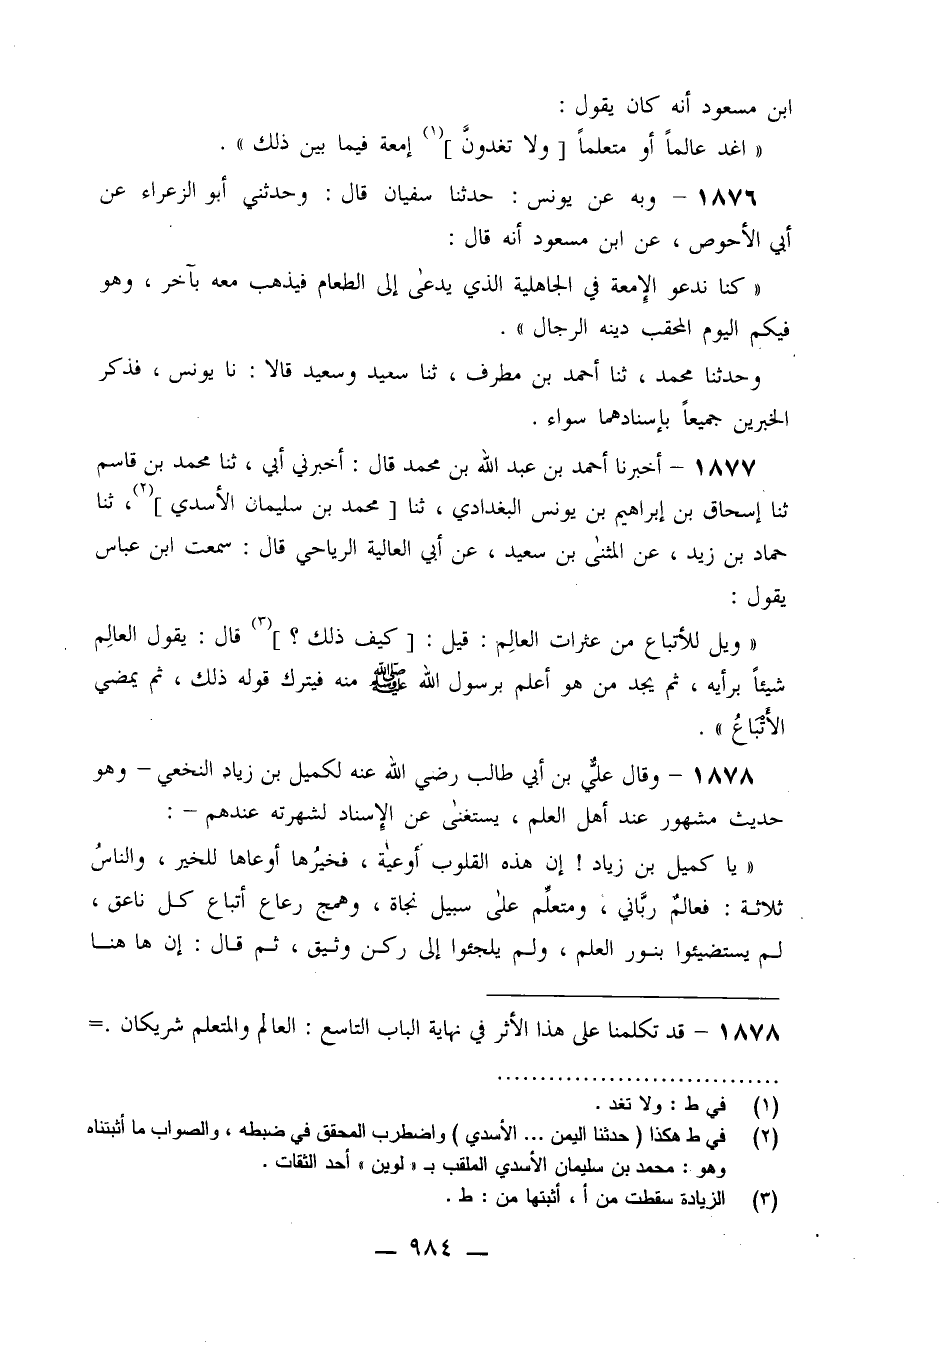 ابن مسعود أنه كان يقول :
« اغد عالماً أو متعلماً [ ولا تغدونَّ ](١) إمعة فيما بين ذلك » .
١٨٧٦ – وبه عن يونس : حدثنا سفيان قال : وحدثني أبو الزعراء عن
أبي الأحوص ، عن ابن مسعود أنه قال :
« كنا ندعو الإمعة في الجاهلية الذي يدعىٰ إلى الطعام فيذهب معه بآخر ، وهو
فيكم اليوم المحقب دينه الرجال » .
وحدثنا محمد ، ثنا أحمد بن مطرف ، ثنا سعيد وسعيد قالا : نا يونس ، فذكر
الخبرين جميعاً بإسنادهما سواء .
١٨٧٧ – أخبرنا أحمد بن عبد الله بن محمد قال : أخبرني أبي ، ثنا محمد بن قاسم
ثنا إسحاق بن إبراهيم بن يونس البغدادي ، ثنا [ محمد بن سليمان الأسدي ](٢)، ثنا
حماد بن زيد ، عن المثنىٰ بن سعيد ، عن أبي العالية الرياحي قال : سمعت ابن عباس
يقول :
« ويل للأتباع من عثرات العالِم : قيل : [ كيف ذلك ؟ ](٣) قال : يقول العالِم
شيئاً برأيه ، ثم يجد من هو أعلم برسول الله ﷺ منه فيترك قوله ذلك ، ثم يمضي
الأَتْبَاعُ » .
١٨٧٨ – وقال عليٌّ بن أبي طالب رضي الله عنه لكميل بن زياد النخعي – وهو
حديث مشهور عند أهل العلم ، يستغنىٰ عن الإسناد لشهرته عندهم – :
« يا كميل بن زياد ! إن هذه القلوب أوعية ، فخيرُها أوعاها للخير ، والناسُ
ثلاثة : فعالمٌ ربَّاني ، ومتعلِّم علىٰ سبيل نجاة ، وهمج رعاع أتباع كل ناعق ،
لم يستضيئوا بنور العلم ، ولم يلجئوا إلى ركن وثيق ، ثم قال : إن ها هنا
١٨٧٨ – قد تكلمنا على هذا الأثر في نهاية الباب التاسع : العالم والمتعلم شريكان .=
(١) في ط : ولا تغد .
(٢) في ط هكذا ( حدثنا اليمن ... الأسدي ) واضطرب المحقق في ضبطه ، والصواب ما أثبتناه
وهو : محمد بن سليمان الأسدي الملقب بـ « لوين » أحد الثقات .
(٣) الزيادة سقطت من أ ، أثبتها من : ط .
— ٩٨٤ —